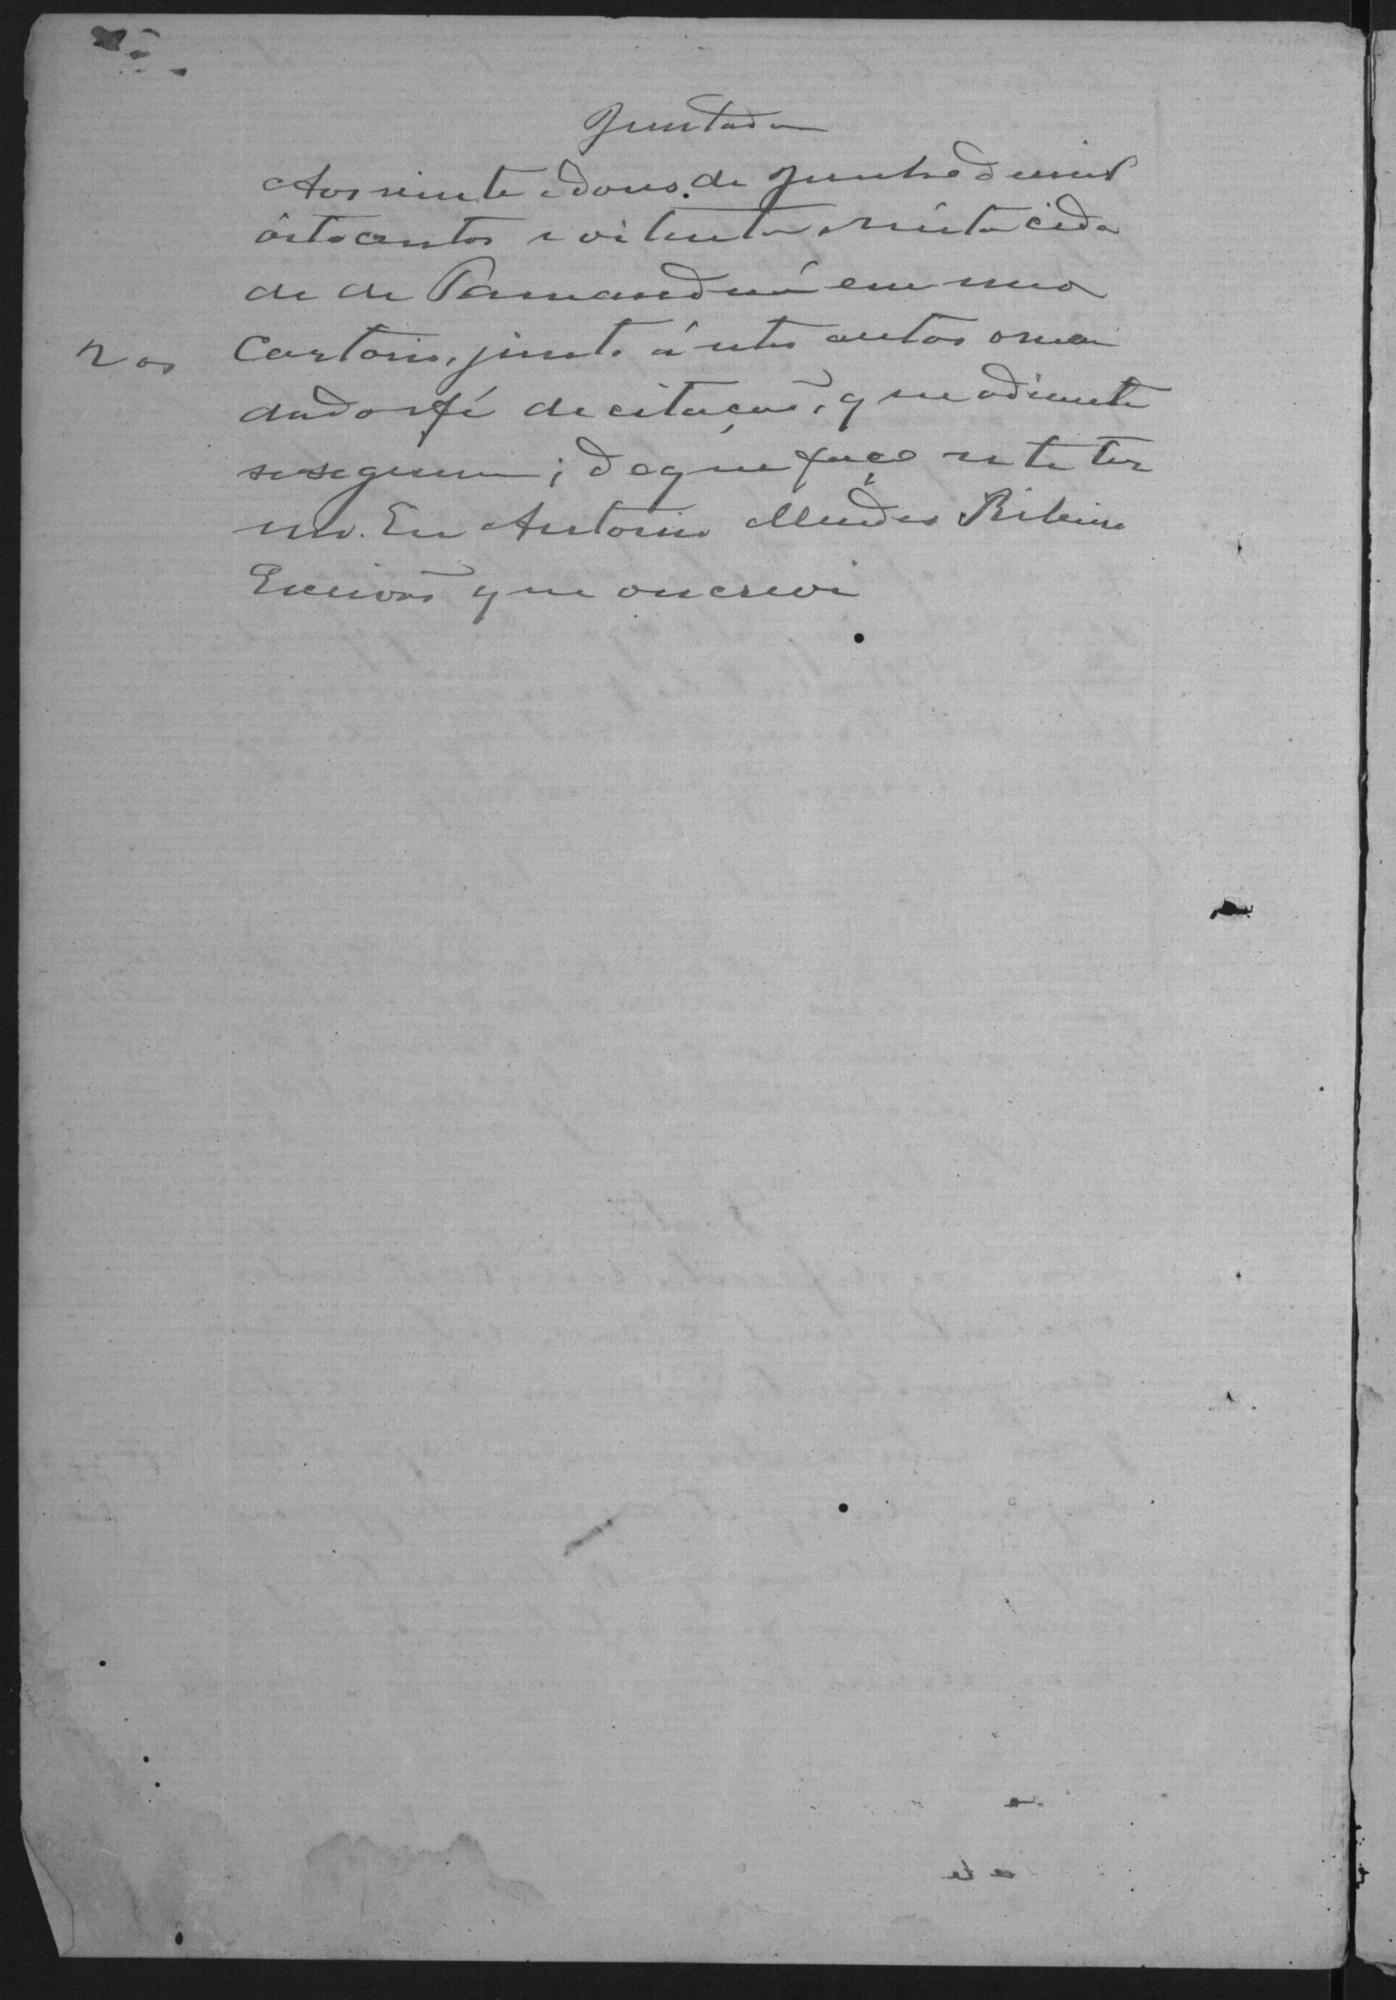 Juntada
Aos vinte e dous de Junho de mil
oitocentos e oitenta, n'esta cida
de de Paranaguá em meo
200 Cartorio, junto á estes autos o man
dado e fé de citação, que adiante
se seguem; do que faço este ter
mo. Eu Antonio Mendes Ribeiro
Escrivão que o escrevi